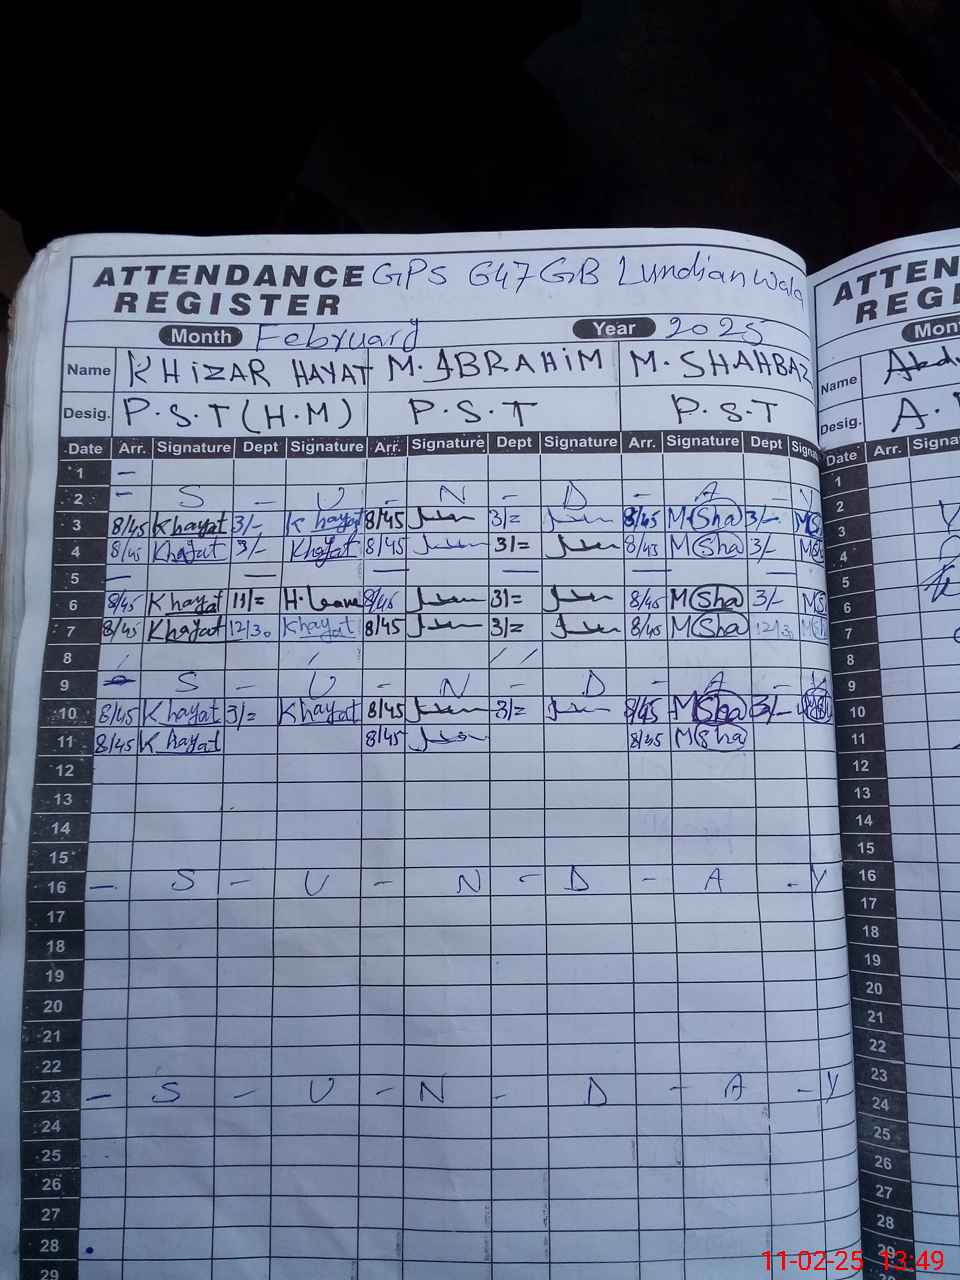 ATTENDANCE REGISTER GPS 647 GB Lundianwala
Month February Year 2025
Name KHIZAR HAYAT M. IBRAHIM M. SHAHBAZ
Desig. P.S.T (H.M) P.S.T P.S.T
Date Arr. Signature Dept Signature Arr. Signature Dept Signature Arr. Signature Dept Signat
1 -
2 - S - U - N - D - A -
3 8/45 Khayat 3/- Khayat 8/45 3/= 8/45 M Sha 3/- MS
4 8/45 Khayat 3/- Khayat 8/45 3/= 8/45 M Sha 3/-
5 — — — — — —
6 8/45 Khayat 11/= H. Leave 8/45 3/= 8/45 M Sha 3/- MS
7 8/45 Khayat 12/30 Khayat 8/45 3/= 8/45 M Sha 12/30
8
9 - S - U - N - D - A -
10 8/45 Khayat 3/= Khayat 8/45 3/= 8/45 M Sha 3/-
11 8/45 Khayat 8/45 8/45 M Sha
12
13
14
15
16 - S - U - N - D - A - Y
17
18
19
20
21
22
23 - S - U - N - D - A - Y
24
25
26
27
28
29
ATTEN
REGI
Mon
Name Abd
Desig. A.
Date Arr. Signa
1
2
3
4
5
6
7
8
9
10
11
12
13
14
15
16
17
18
19
20
21
22
23
24
25
26
27
28
29
11-02-25 13:49